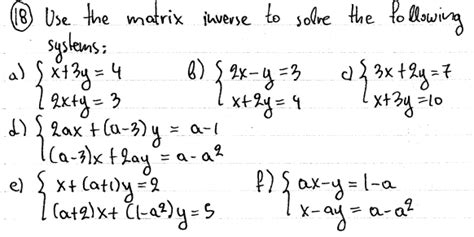 (18) Use the matrix inverse to solve the following
systems:
a) { x+3y = 4 b) { 2x-y = 3 c) { 3x+2y = 7
2x+y = 3 x+2y = 4 x+3y = 10
d) { 2ax + (a-3)y = a-1
(a-3)x + 2ay = a-a²
e) { x + (a+1)y = 2 f) { ax-y = 1-a
(a+2)x + (1-a²)y = 5 x-ay = a-a²